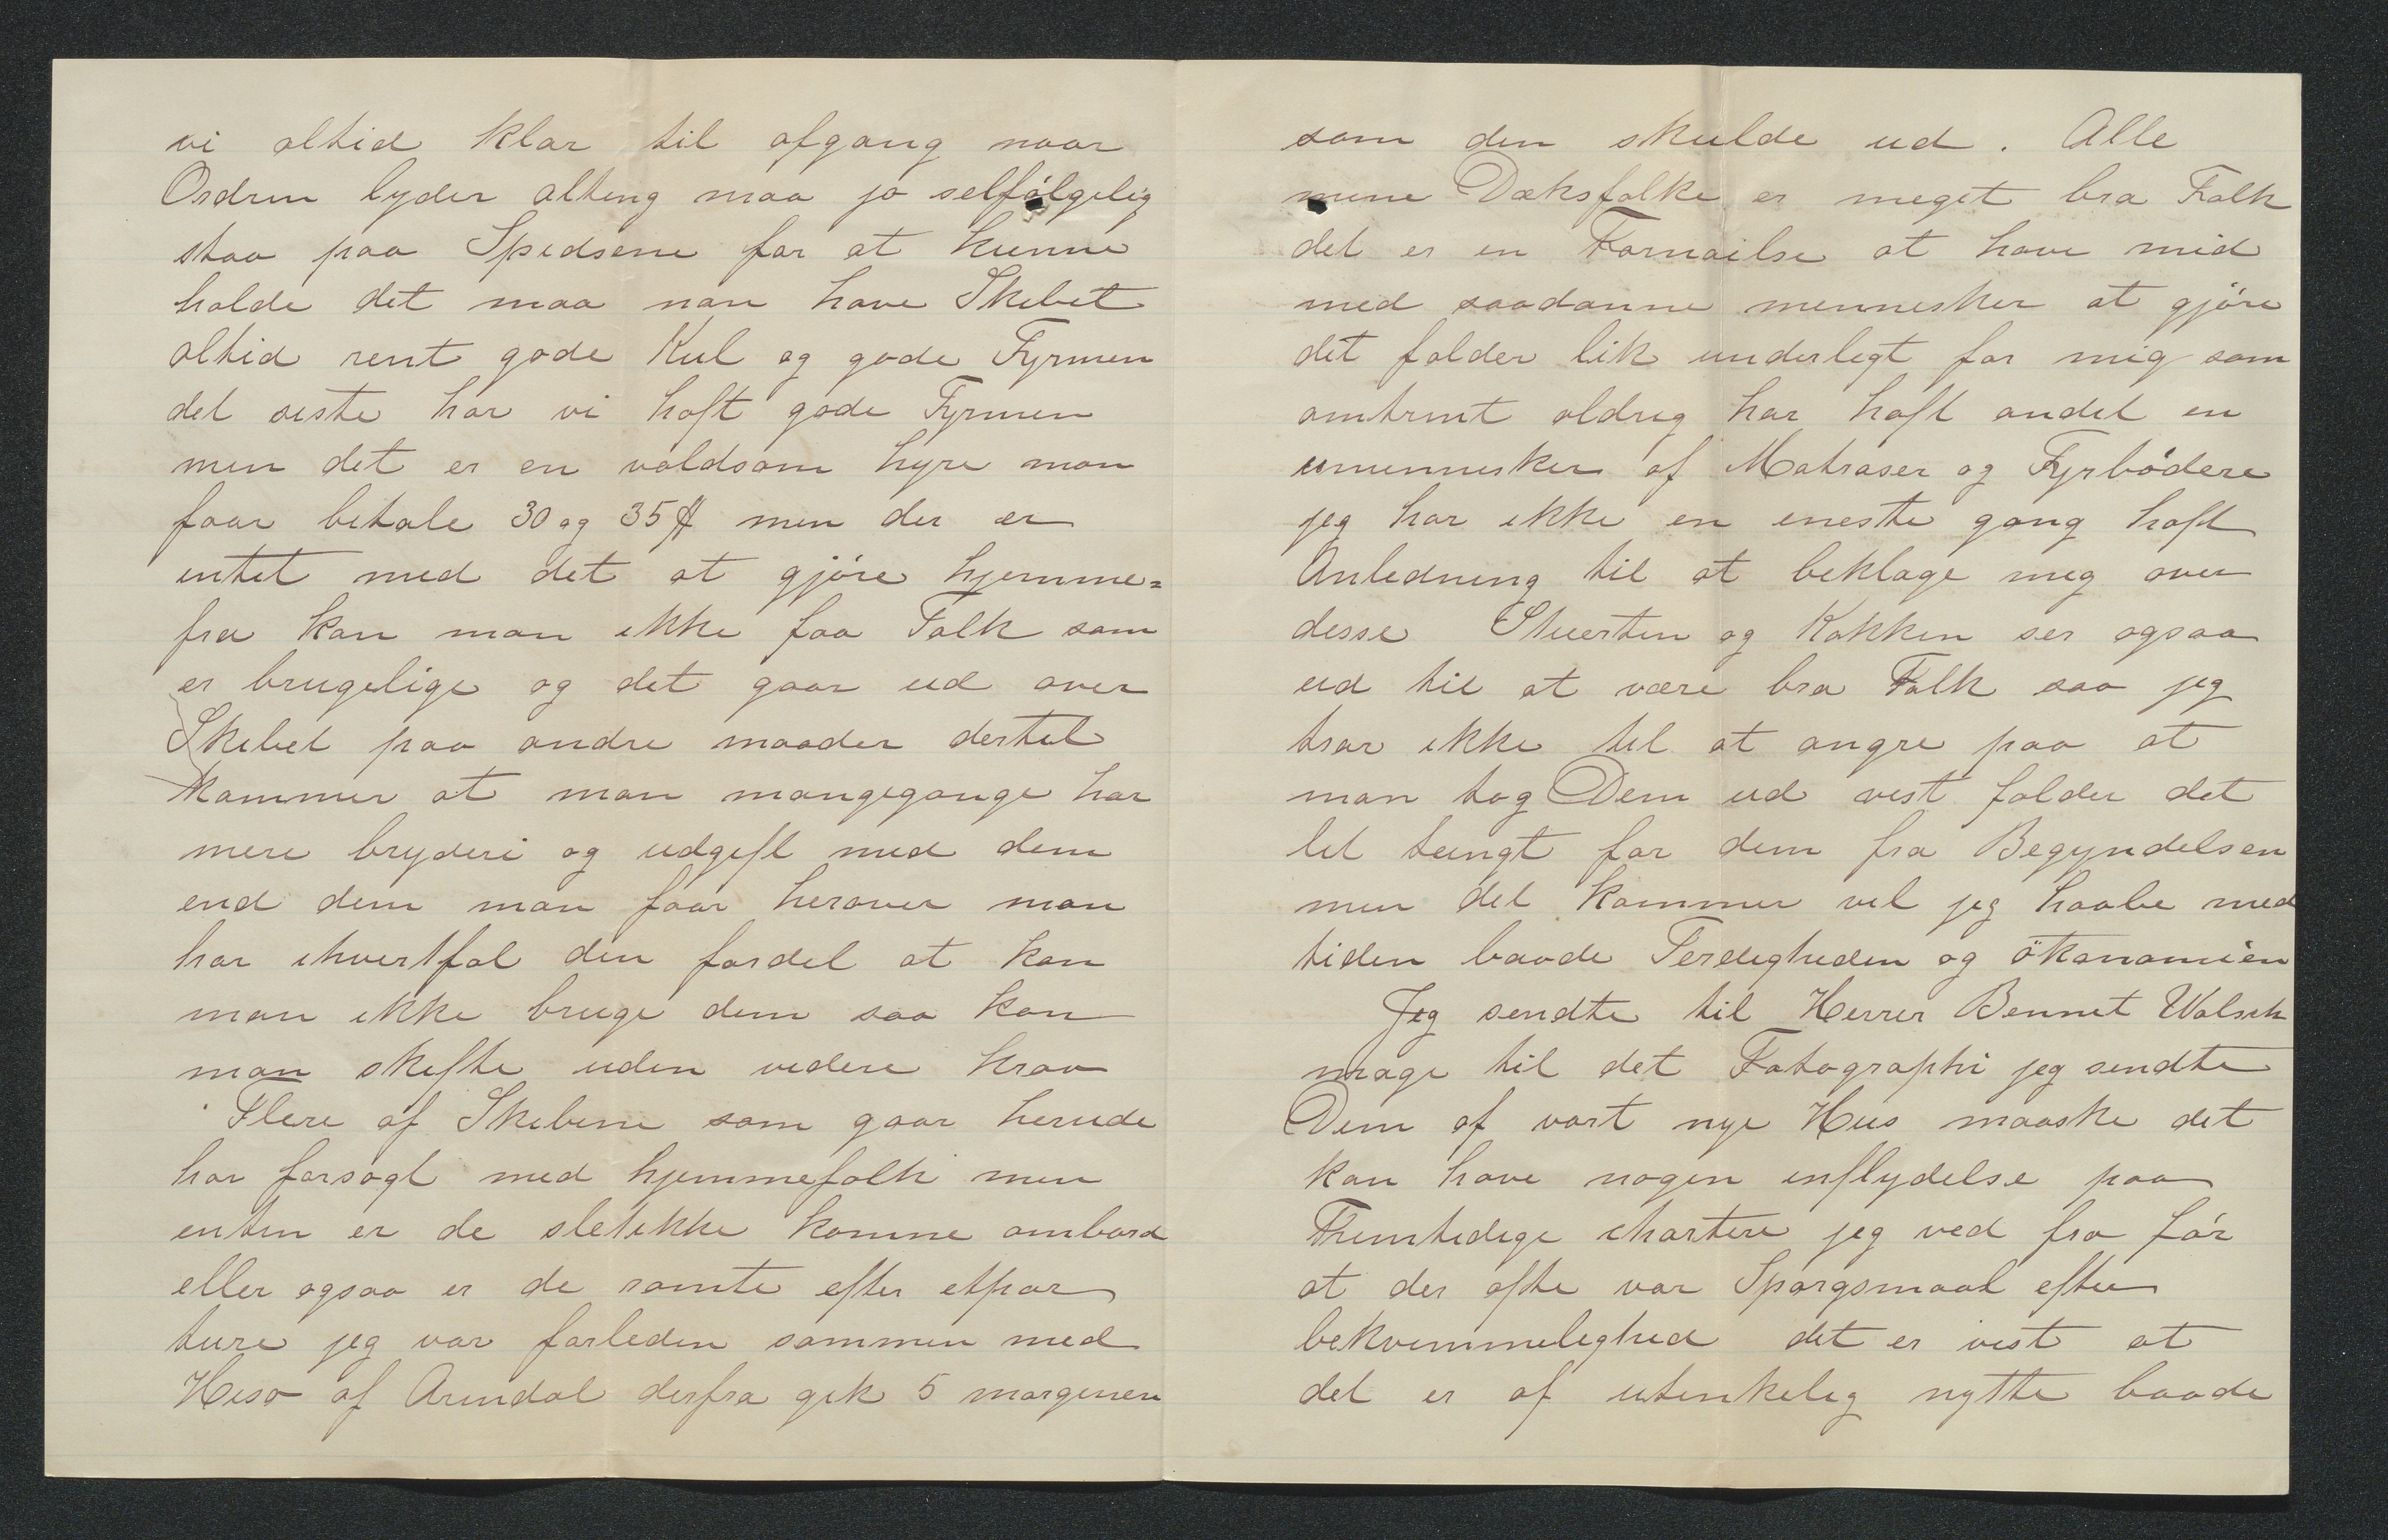 vi altid klar til afgang naar
Ordren lyder alting maa jo selfölgelig
staa paa Spidsene for at kunne
holde det maa man have Skibet
altid rent gode Kul og gode Fyrmen
det siste har vi haft gode Fyrmen
men det er en voldsom hyre man
faar betale 30 og 35 $ men der er
intet med det at gjöre hjemme=
fra kan man ikke faa Folk som
er brugelige og det gaar ud over
Skibet paa andre maader dertil
kommer at man mangegange har
mere bryderi og udgift med dem
end dem man faar herover man
har ihvertfal den fordel at kan
man ikke bruge dem saa kan
man skifte uden videre krav
Flere af Skibene som gaar herude
har forsögt med hjemmefolk men
enten er de sletikke komne ombord
eller ogsaa er de römte efter etpar
ture jeg var forleden sammen med
Hisö af Arendal derfra gik 5 morgenen
som den skulde ud. Alle
mine Dæksfolke er meget bra Folk
det er en Fornöilse at have med
med saadanne mennesker at gjöre
det falder lik underligt for mig som
omtrent aldrig har haft andet en
umennisker af Matroser og Fyrbödere
jeg har ikke en eneste gang haft
Anledning til at beklage mig over
desse Stuerten og Kokken ser ogsaa
ud til at være bra Folk saa jeg
tror ikke til at angre paa at
man tog Dem ud vist falder det
lit tungt for dem fra Begyndelsen
men det kommer vil jeg haabe med
tiden baade Ferdigheden og ökonomien
Jeg sendte til Herrer Bennet Walsch
mage til det Fotographi jeg sendte
Dem af vort nye Hus maaske det
kan have nogen inflydelse paa
Fremtidige chartere jeg ved fra för
at der ofte var Sporgsmaal efter
bekvemmelighed det er vist at
det er af utenkelig nytte baade